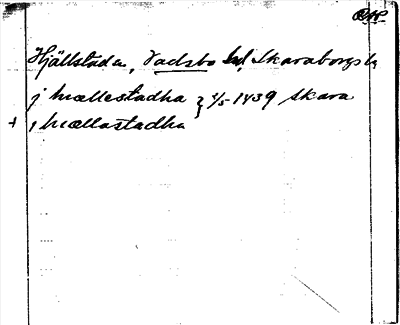 Hjällstada, Vadsbo hd, Skaraborgs l.
j hiællestadha } 2/5 1439 Skara
+ i hiællastadha